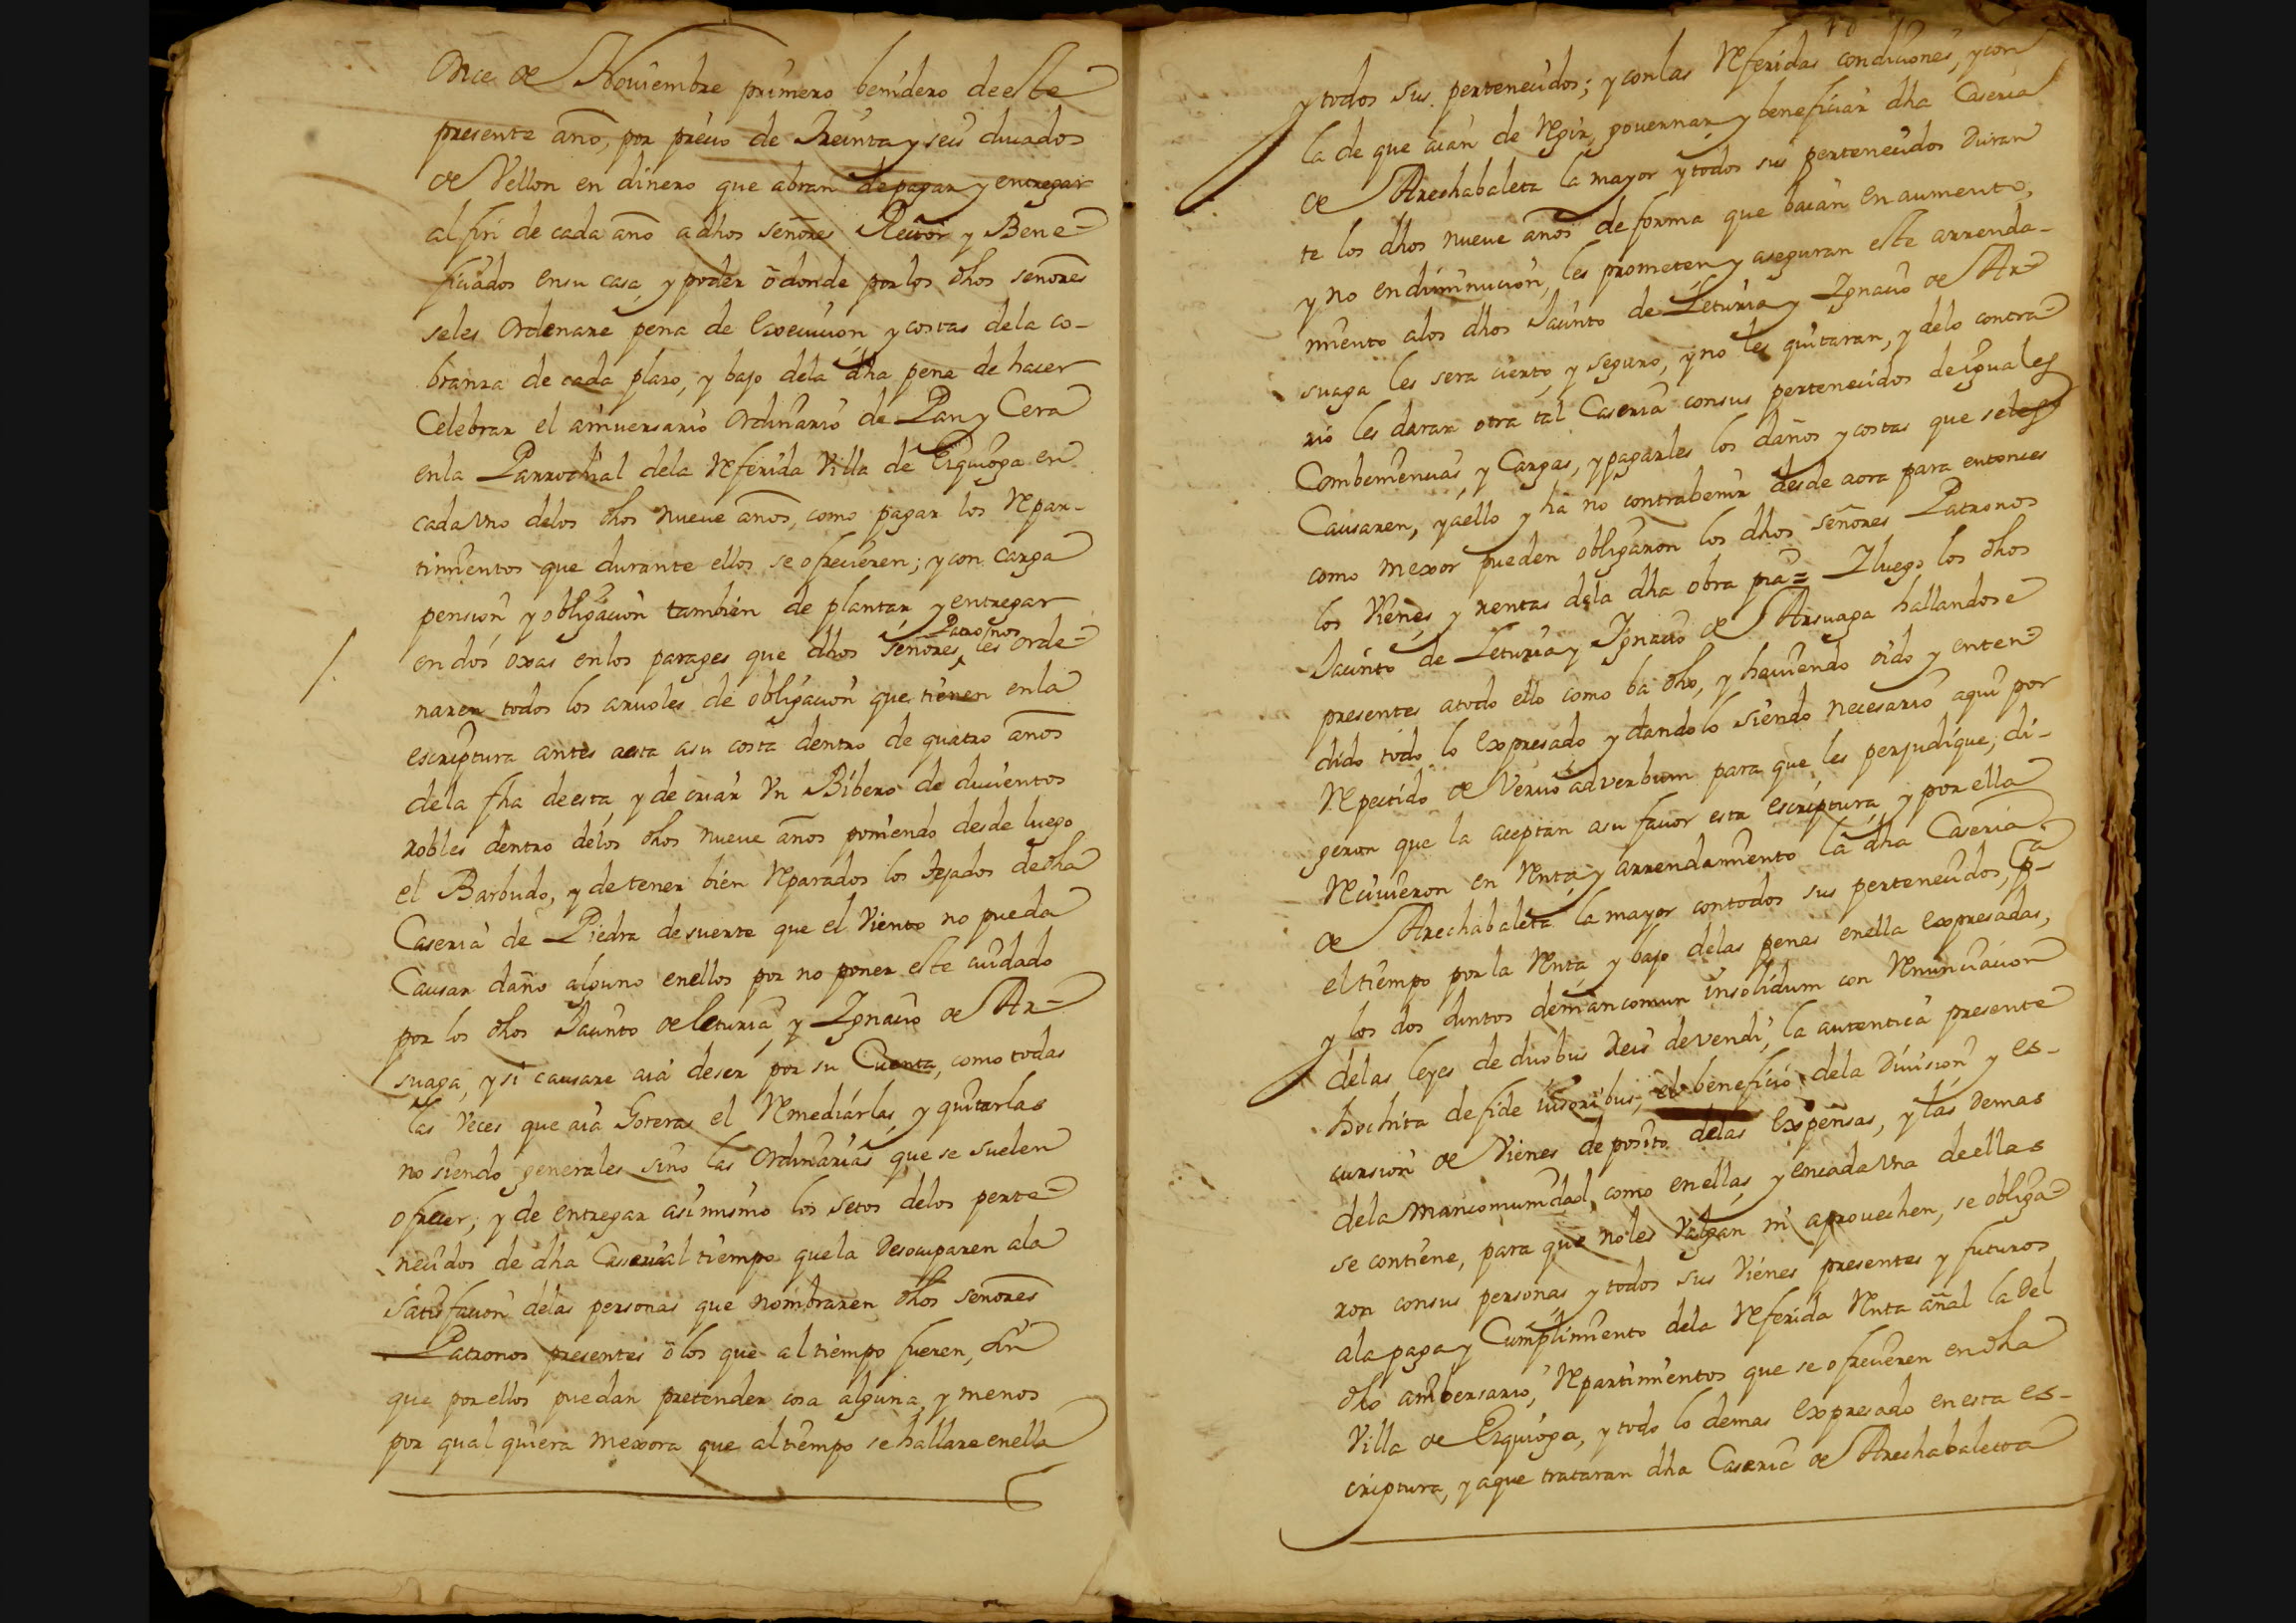 Once de Nouiembre primero benidero de este
presente año, por precio de Treinta y seis ducados
de Vellon en dinero que abran de pagar y entregar
al fin de cada año a dhos señores Rector y Bene=
ficiados en su casa, y poder ò donde por los dhos señores
se les Ordenare pena de Execucion y costas de la co-
branza de cada plazo, y bajo de la dha pena de hacer
Celebrar el aniuersario Ordinario de Pan y Cera
en la Parrochial de la Referida Villa de Ezquioga en
cada Vno de los dhos nueue años, como pagar los Repar-
timientos que durante ellos se ofrecieren; y con carga
pension y obligacion tambien de plantar y entregar
en dos oxas en los parages que dhos señores Patronos les Orde=
naren todos los aruoles de obligacion que tienen en la
escriptura antes de esta a su costa dentro de quatro años
de la fha de esta y de criar Vn Bibero de ducientos
robles dentro de los dhos nueue años poniendo desde luego
el Barbudo, y de tener bien Reparados los tejados de dha
Caseria de Piedra de suerte que el Viento no pueda
Causar daño alguno en ellos por no poner este cuidado
por los dhos Jacinto de leturia, y Ignacio de Ar=
suaga, y si causare aia de ser por su Cuenta, como todas
las Veces que aia Goteras el Remediarlas, y quitarlas
no siendo generales sino las Ordinarias que se suelen
ofrecer; y de entregar asi mismo los setos de los perte=
necidos de dha Caseria al tiempo que la Desocuparen a la
satisfacion de las personas que nombraren dhos señores
Patronos presentes ò los que al tiempo fueren, sin
que por ellos puedan pretender cosa alguna, y menos
por qual quiera mexora que al tiempo se hallare en ella
y todos sus pertenecidos; y con las Referidas condiciones, y con
la de que aian de Regir, gouernar y beneficiar dha Caseria
de Arechabaleta la mayor y todos sus pertenecidos Duran
te los dhos nueue años de forma que baian en aumento,
y no en diminucion, les prometen y aseguran este arrenda-
miento a los dhos Jacinto de Leturia y Ignacio de Ar=
suaga les sera cierto, y seguro, y no les quitaran, y de lo contra=
rio les daran otra tal Caseria con sus pertenecidos de iguales
Combeniencias, y Cargas, y pagarles los daños y costas que se les
Causaren, y a ello y ha no contrabenir desde aora para entonces
como mexor pueden obligaron los dhos señores Patronos
los Vienes y rentas de la dha obra pia= Y luego los dhos
Jacinto de Leturia y Ignacio de Arsuaga hallandose
presentes a todo ello como ba dho, y hauiendo oido y enten=
dido todo lo Expresado, y dandolo siendo necesario aqui por
Repetido de Verbo ad verbum para que les perjudique, di-
geron que la aceptan a su fauor esta escriptura, y por ella
Reciuieron en Renta y arrendamiento la dha Caseria
de Arechabaleta la mayor con todos sus pertenecidos, pa
el tiempo por la Renta, y bajo de las penas en ella expresadas,
y los dos Juntos de mancomun insolidum con Renunciacion
de las leyes de duobus Reis devendi, la autentica presente
hochita de fide iusoribus, el beneficio de la Diuision y es-
cursion de Vienes deposito delas Expensas, y las Demas
de la mancomunidad, como en ellas, y en cada Vna de ellas
se contiene, para que no les Valgan ni aprouechen, se obliga=
ron con sus personas y todos sus Vienes presentes y futuros
a la paga y Cumplimiento de la Referida Renta añal la del
dho anibersario, Repartimientos que se ofrecieren en dha
Villa de Ezquioga, y todo lo demas Expresado en esta es-
criptura, y a que trataran dha Caseria de Arechabaleta